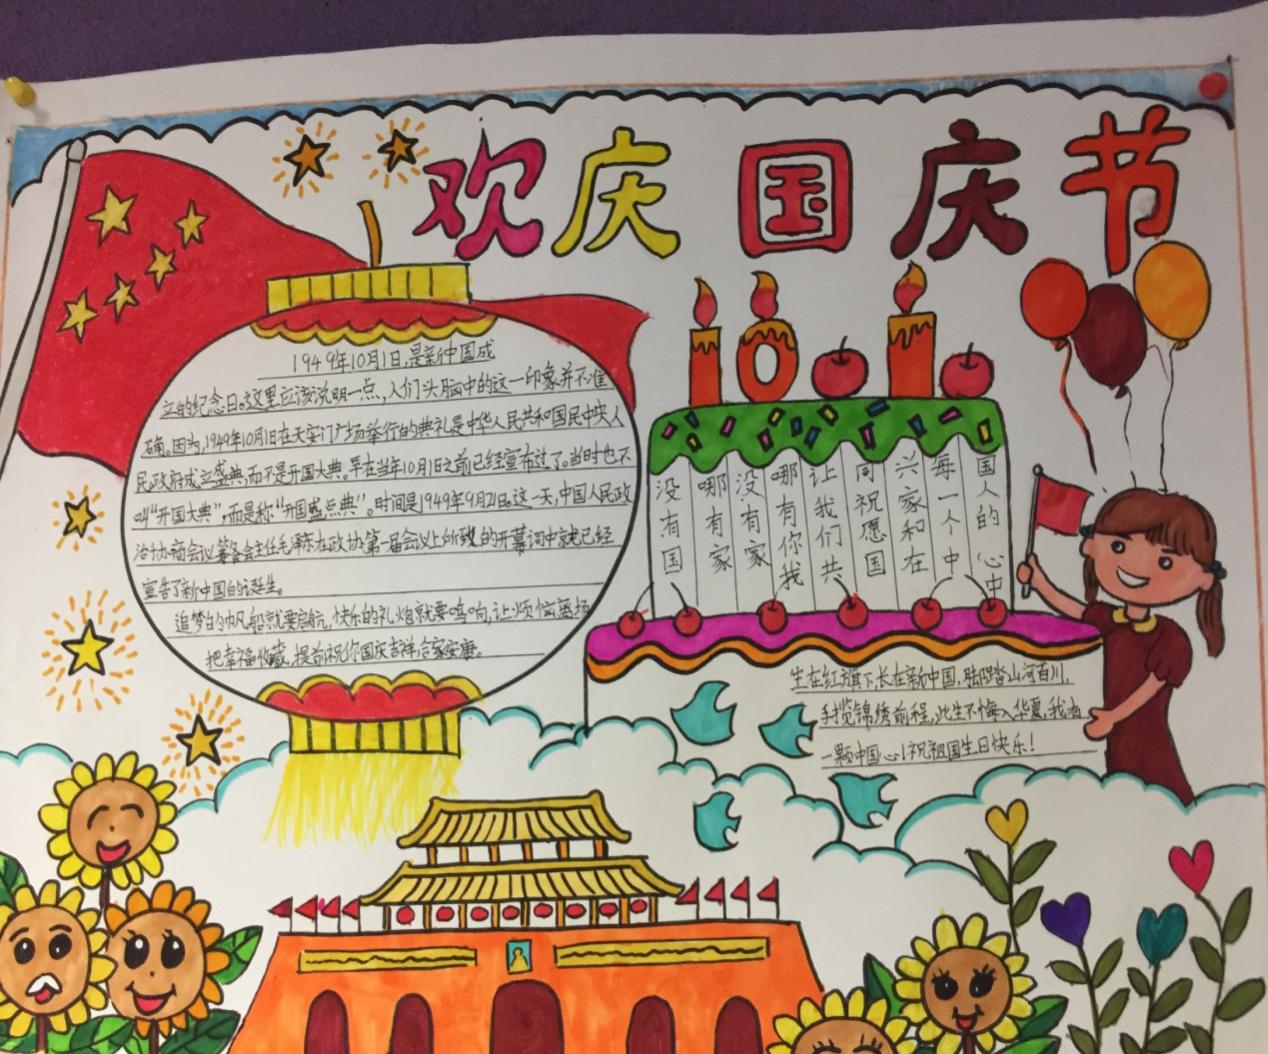 欢庆国庆节
1949年10月1日,是新中国成
立的纪念日。这里应该说明一点,人们头脑中的这一印象并不准
确。因为,1949年10月1日在天安门广场举行的典礼是中华人民共和国民中央人
民政府成立盛典,而不是开国大典。早在当年10月1日之前已经宣布过了。当时也不
叫“开国大典”,而是称“开国盛典”。时间是1949年9月21日。这一天,中国人民政
治协商会议筹备会主任毛泽东在政协第一届会议上所致的开幕词中就已经
宣告了新中国的诞生。
追梦的帆船就要启航,快乐的礼炮就要鸣响,让烦恼离场
把幸福收藏,提前祝你国庆吉祥,合家安康。
10.1.
没有国
哪有家
没有家
哪有你我
让我们共
同祝愿国
兴家和在
每一个中
国人的心中
生在红旗下,长在新中国,脚踏山河百川,
手揽锦绣前程,此生不悔入华夏,我有
一颗中国心!祝祖国生日快乐!